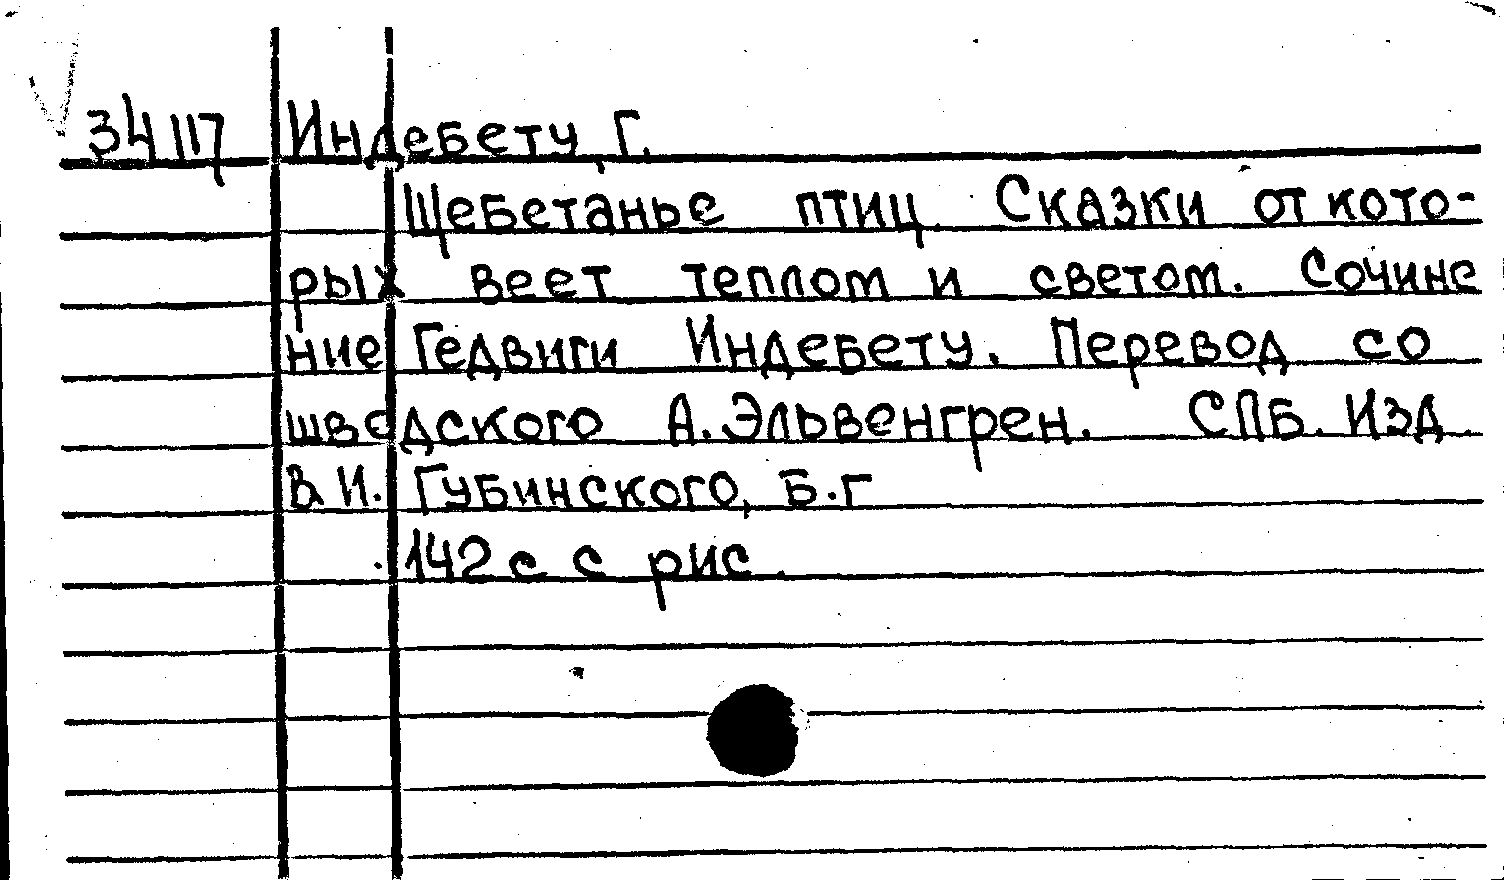 34117 Индебету, Г.
Щебетанье птиц. Сказки от кото-
рых веет теплом и светом. Сочине
ние Гедвиги Индебету. Перевод со
шведского А. Эльвенгрен. СПБ. Изд.
В.И. Губинского, Б.г
142 с с рис.